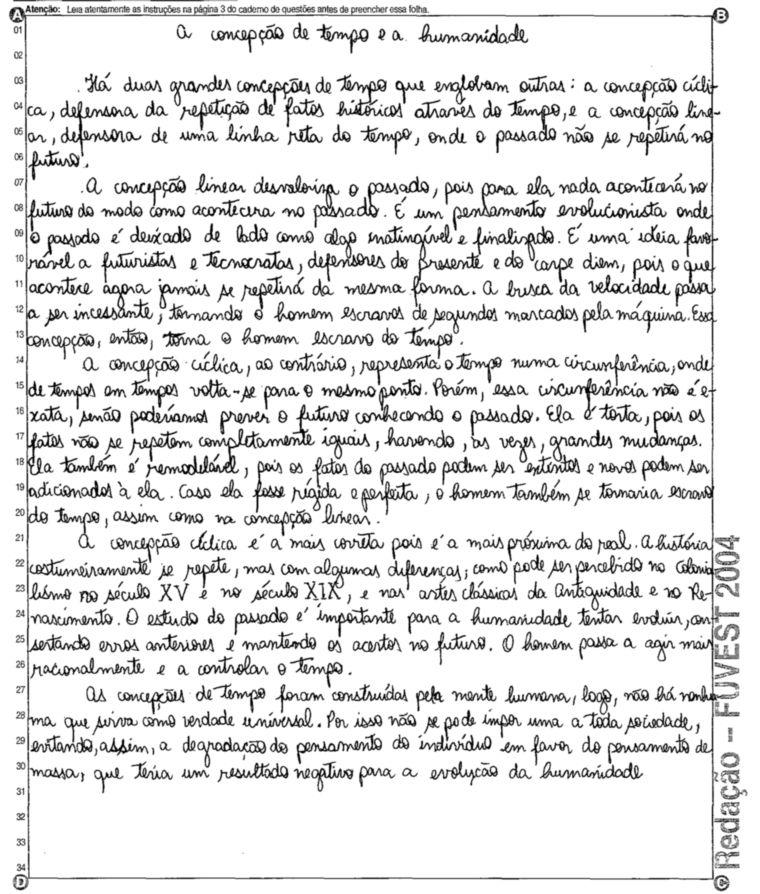 A
Atenção: Leia atentamente as instruções na página 3 do caderno de questões antes de preencher essa folha.
B
01 A concepção de tempo e a humanidade
02
03 Há duas grandes concepções de tempo que englobam outras: a concepção cícli-
04 ca, defensora da repetição de fatos históricos através do tempo, e a concepção line-
05 ar, defensora de uma linha reta do tempo, onde o passado não se repetirá no
06 futuro.
07 A concepção linear desvaloriza o passado, pois para ela nada acontecerá no
08 futuro do modo como acontecera no passado. É um pensamento evolucionista onde
09 o passado é deixado de lado como algo inatingível e finalizado. É uma ideia favo-
10 rável a futuristas e tecnocratas, defensores do presente e do carpe diem, pois o que
11 acontece agora jamais se repetirá da mesma forma. A busca da velocidade passa
12 a ser incessante, tornando o homem escravos de segundos marcados pela máquina. Essa
13 concepção, então, torna o homem escravo do tempo.
14 A concepção cíclica, ao contrário, representa o tempo numa circunferência, onde
15 de tempos em tempos volta-se para o mesmo ponto. Porém, essa circunferência não é e-
16 xata, senão poderíamos prever o futuro conhecendo o passado. Ela é torta, pois os
17 fatos não se repetem completamente iguais, havendo, às vezes, grandes mudanças.
18 Ela também é remodelável, pois os fatos do passado podem ser extintos e novos podem ser
19 adicionados à ela. Caso ela fosse rígida e perfeita, o homem também se tornaria escravo
20 do tempo, assim como na concepção linear.
21 A concepção cíclica é a mais correta pois é a mais próxima do real. A história
22 costumeiramente se repete, mas com algumas diferenças, como pode ser percebido no Colonia-
23 lismo no século XV e no século XIX, e nas artes clássicas da Antiguidade e no Re-
24 nascimento. O estudo do passado é importante para a humanidade tentar evoluir, con-
25 sertando erros anteriores e mantendo os acertos no futuro. O homem passa a agir mais
26 racionalmente e a controlar o tempo.
27 As concepções de tempo foram construídas pela mente humana, logo, não há nenhu-
28 ma que sirva como verdade universal. Por isso não se pode impor uma a toda sociedade,
29 evitando, assim, a degradação do pensamento do indivíduo em favor do pensamento de
30 massa, que teria um resultado negativo para a evolução da humanidade
31
32
33
34
D
C
Redação – FUVEST 2004